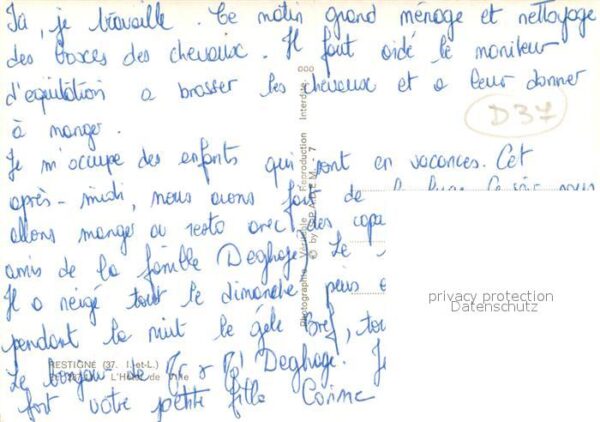 Ici, je travaille. Ce matin grand ménage et nettoyage
des boxes des chevaux. Il faut aidé le moniteur
d'equitation a brosser les chevaux et a leur donner
à manger.
D37
Je m'occupe des enfants qui sont en vacances. Cet
après-midi, nous avons fait de
allons manger au resto avec des copa
amis de la famille Deghage. Le
Il a neigé tout le dimanche puis
pendant la nuit le gèle Bref, tou
Le bonjour de Mr & Mme Deghage. Je
fort votre petite fille Corinne
RESTIGNE (37. I.-et-L.)
L'Hôtel de Ville
Photographie Véritable - Reproduction Interdite
© by CAP
privacy protection
Datenschutz